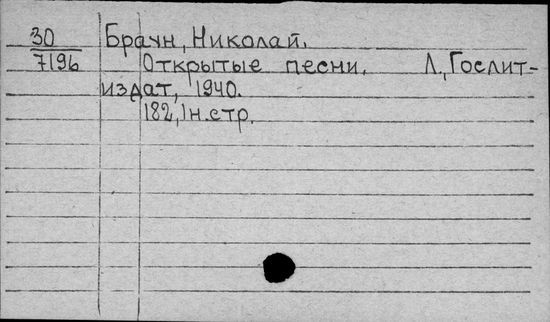 30 Браун, Николай.
7196 Открытые песни. Л., Гослит-
издат, 1940.
182, 1н. стр.